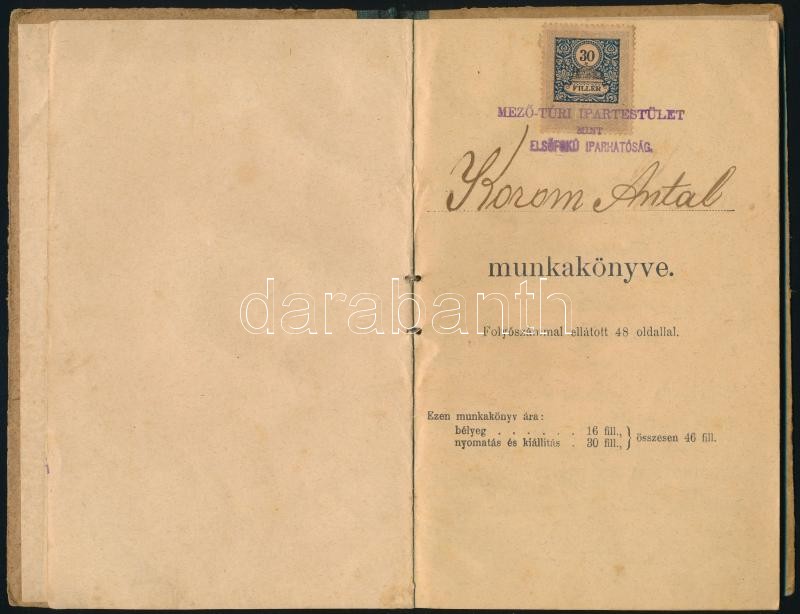 30
FILLER
MEZŐ-TÚRI IPARTESTÜLET
MINT
ELSŐFOKÚ IPARHATÓSÁG.
Korom Antal
munkakönyve.
darabanth
Folyószámmal ellátott 48 oldallal.
Ezen munkakönyv ára:
bélyeg . . . . . . 16 fill.,
nyomatás és kiállítás . 30 fill., } összesen 46 fill.